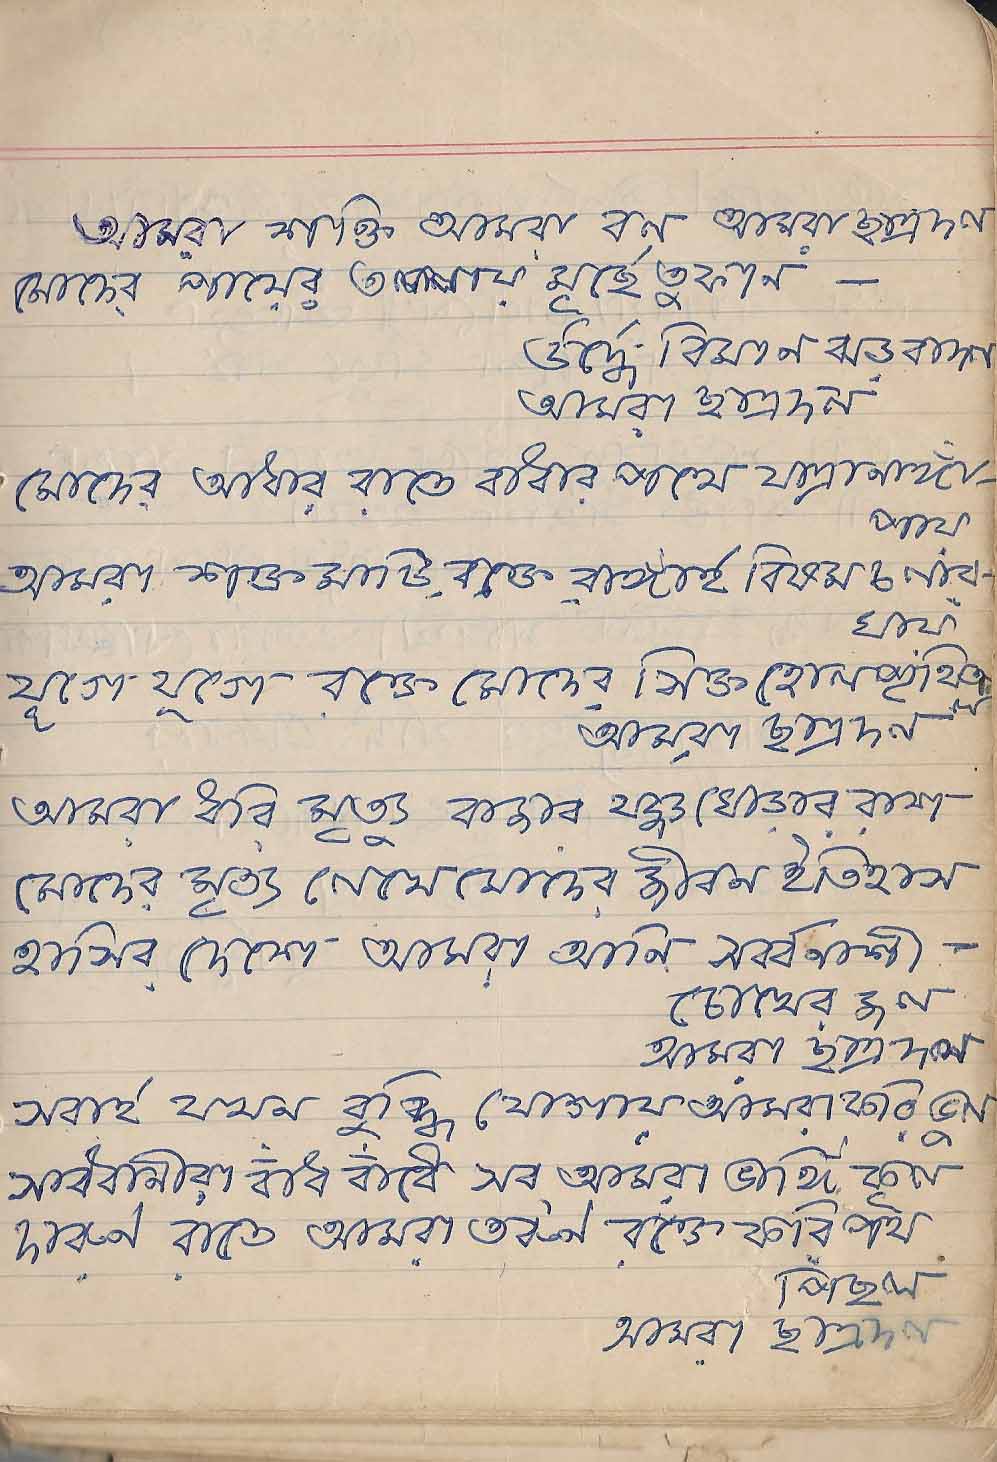 আমরা শক্তি আমরা বল আমরা ছাত্রদল
মোদের পায়ের তলায় মূর্ছে তুফান —
উর্দ্ধে বিমান ঝড় বাদল
আমরা ছাত্রদল
মোদের আধার রাতে বাধার পথে যাত্রা নাঙ্গা-
পায়
আমরা শক্ত মাটি রক্তে রাঙ্গাই বিষম চলার-
ঘায়
যুগে যুগে রক্তে মোদের সিক্ত হোল পৃথিতল
আমরা ছাত্রদল
আমরা ধরি মৃত্যু রাজার যজ্ঞ ঘোড়ার রাশ
মোদের মৃত্যু লেখে মোদের জীবন ইতিহাস
হাসির দেশে আমরা আনি সর্বনাশী —
চোখের জল
আমরা ছাত্রদল
সবাই যখন বুদ্ধি যোগায় আমরা করি ভুল
সাবধানীরা বাঁধ বাঁধে সব আমরা ভাঙ্গি কূল
দারুন রাতে আমরা তরুন রক্তে করি পথ
পিছল
আমরা ছাত্রদল